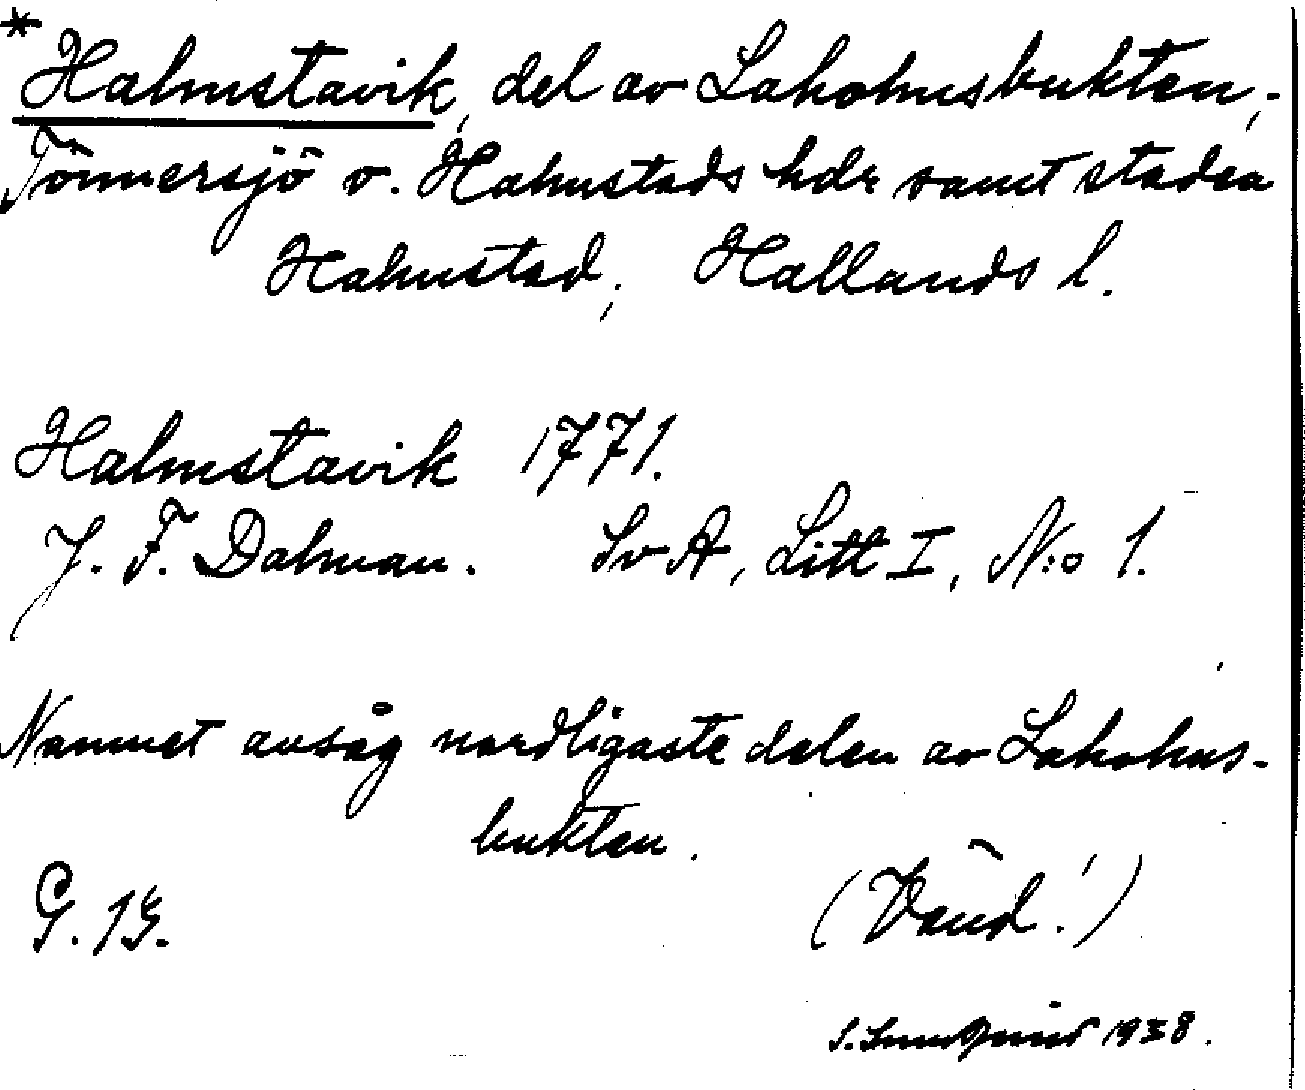 * Halmstavik, del av Laholmsbukten,
Tönnersjö o. Halmstads hdr samt staden
Halmstad, Hallands l.
Halmstavik 1771.
J. F. Dalman. Sv A, Litt I, N:o 1.
Namnet avsåg nordligaste delen av Laholms-
bukten.
G. 19.
(Vänd!)
S. 1938.